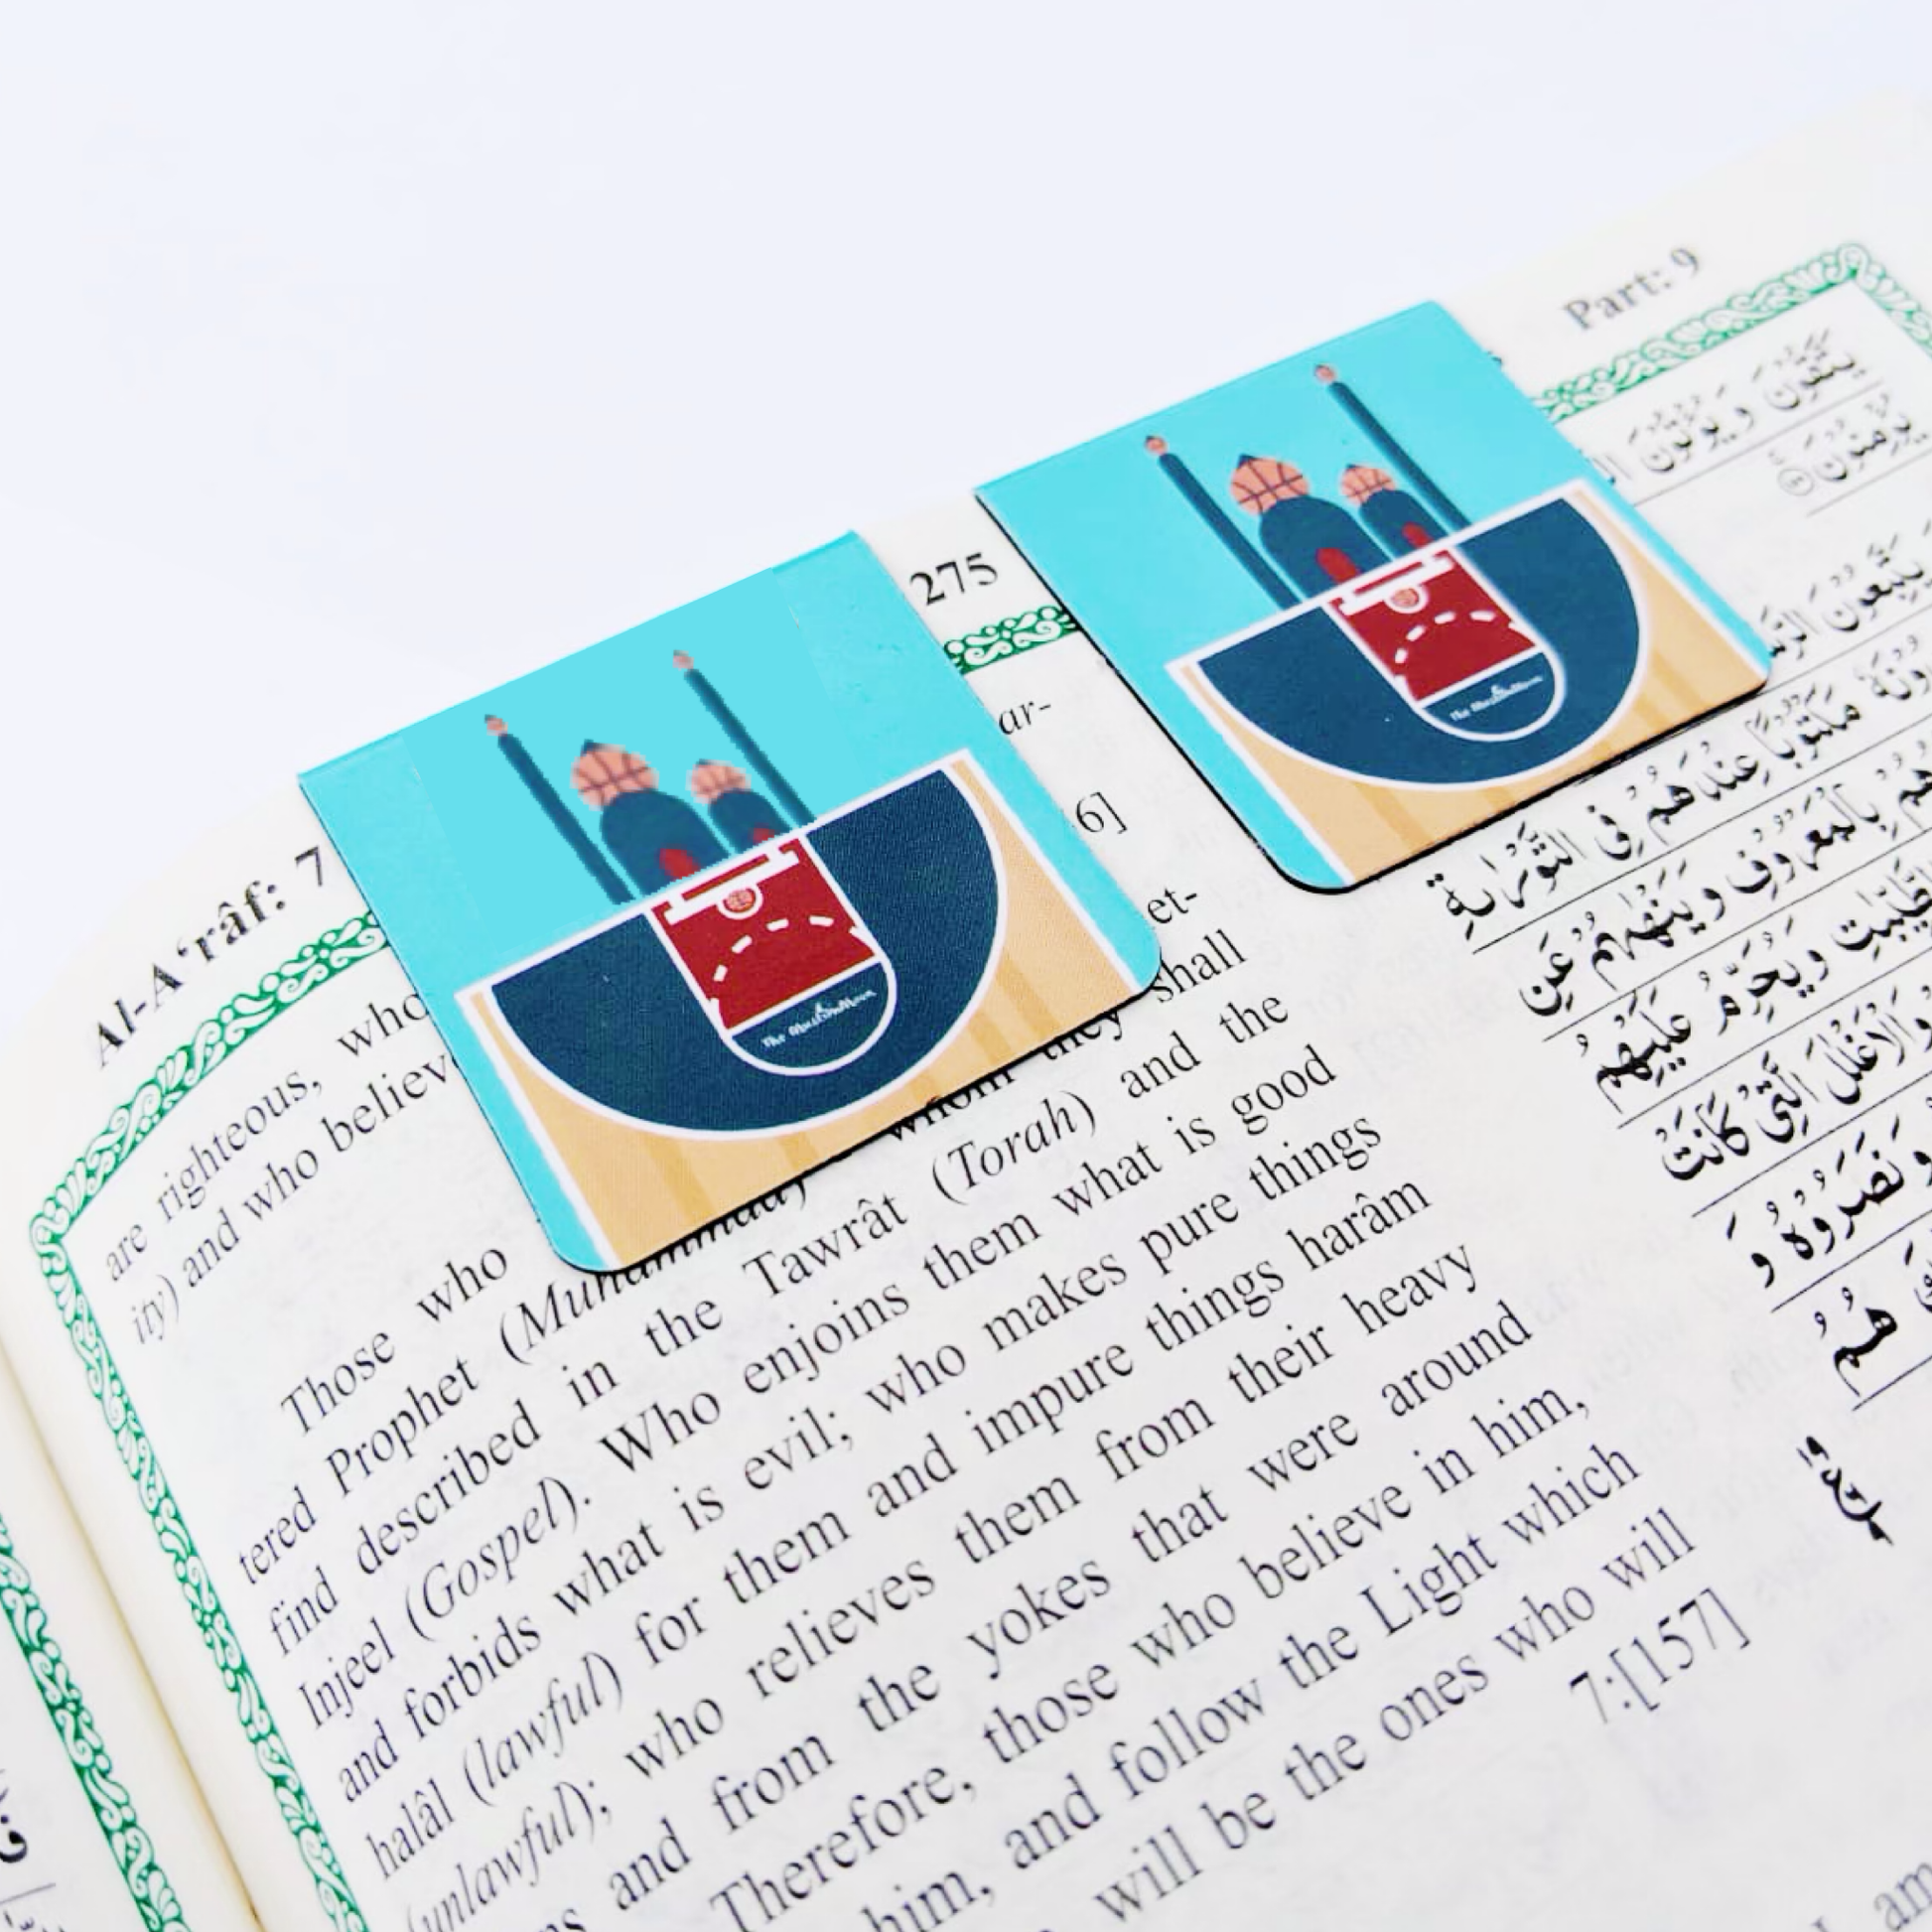 Al-A'râf: 7
275
Part: 9
are righteous, who
ar-
ity) and who believ
6]
Those who
et-
tered Prophet (Muhammad) whom they shall
find described in the Tawrât (Torah) and the
Injeel (Gospel). Who enjoins them what is good
and forbids what is evil; who makes pure things
halâl (lawful) for them and impure things harâm
(unlawful); who relieves them from their heavy
and from the yokes that were around
Therefore, those who believe in him,
him, and follow the Light which
will be the ones who will
7:[157]
am
يَتَّقُونَ وَيُؤْتُونَ
يُؤْمِنُونَ
يَتَّبِعُونَ
مَكْتُوبًا عِنْدَهُمْ فِي التَّوْرٰىةِ
بِالْمَعْرُوفِ وَيَنْهٰىهُمْ عَنِ
وَيُحَرِّمُ عَلَيْهِمُ
وَالْاَغْلٰلَ الَّتِيْ كَانَتْ
وَنَصَرُوْهُ وَ
هُمُ
The MuslimMoon
The MuslimMoon